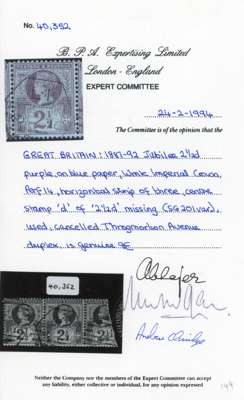 No. 40,352
B. P. A. Expertising Limited
London - England
EXPERT COMMITTEE
24-2-1994
The Committee is of the opinion that the
GREAT BRITAIN: 1887-92 Jubilee 2½d
purple on blue paper, Wmk Imperial Crown,
Perf 14, horizontal strip of three, centre
stamp 'd' of '2½d' missing (SG 201var),
used, cancelled Throgmorton Avenue
duplex, is genuine
2½
40,352
2½ 2½ 2½
Neither the Company nor the members of the Expert Committee can accept
any liability, either collective or individual, for any opinion expressed